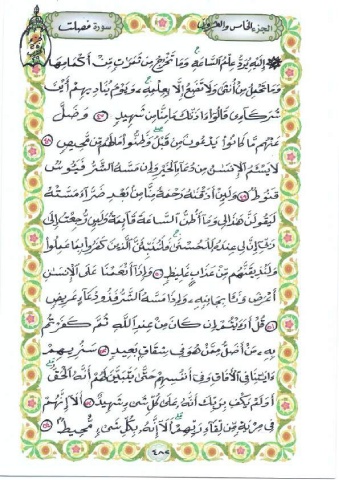 الجزء الخامس والعشرون
سورة فصلت
إِلَيْهِ يُرَدُّ عِلْمُ السَّاعَةِ وَمَا تَخْرُجُ مِن ثَمَرَاتٍ مِّنْ أَكْمَامِهَا
وَمَا تَحْمِلُ مِنْ أُنثَىٰ وَلَا تَضَعُ إِلَّا بِعِلْمِهِ وَيَوْمَ يُنَادِيهِمْ أَيْنَ
شُرَكَائِي قَالُوا آذَنَّاكَ مَا مِنَّا مِن شَهِيدٍ ٤٧ وَضَلَّ
عَنْهُم مَّا كَانُوا يَدْعُونَ مِن قَبْلُ وَظَنُّوا مَا لَهُم مِّن مَّحِيصٍ ٤٨
لَا يَسْأَمُ الْإِنسَانُ مِن دُعَاءِ الْخَيْرِ وَإِن مَّسَّهُ الشَّرُّ فَيَئُوسٌ
قَنُوطٌ ٤٩ وَلَئِنْ أَذَقْنَاهُ رَحْمَةً مِّنَّا مِن بَعْدِ ضَرَّاءَ مَسَّتْهُ
لَيَقُولَنَّ هَٰذَا لِي وَمَا أَظُنُّ السَّاعَةَ قَائِمَةً وَلَئِن رُّجِعْتُ إِلَىٰ
رَبِّي إِنَّ لِي عِندَهُ لَلْحُسْنَىٰ فَلَنُنَبِّئَنَّ الَّذِينَ كَفَرُوا بِمَا عَمِلُوا
وَلَنُذِيقَنَّهُم مِّنْ عَذَابٍ غَلِيظٍ ٥٠ وَإِذَا أَنْعَمْنَا عَلَى الْإِنسَانِ
أَعْرَضَ وَنَأَىٰ بِجَانِبِهِ وَإِذَا مَسَّهُ الشَّرُّ فَذُو دُعَاءٍ عَرِيضٍ
٥١ قُلْ أَرَأَيْتُمْ إِن كَانَ مِنْ عِندِ اللَّهِ ثُمَّ كَفَرْتُم
بِهِ مَنْ أَضَلُّ مِمَّنْ هُوَ فِي شِقَاقٍ بَعِيدٍ ٥٢ سَنُرِيهِمْ
آيَاتِنَا فِي الْآفَاقِ وَفِي أَنفُسِهِمْ حَتَّىٰ يَتَبَيَّنَ لَهُمْ أَنَّهُ الْحَقُّ
أَوَلَمْ يَكْفِ بِرَبِّكَ أَنَّهُ عَلَىٰ كُلِّ شَيْءٍ شَهِيدٌ ٥٣ أَلَا إِنَّهُمْ
فِي مِرْيَةٍ مِّن لِّقَاءِ رَبِّهِمْ أَلَا إِنَّهُ بِكُلِّ شَيْءٍ مُّحِيطٌ ٥٤
٤٨٢